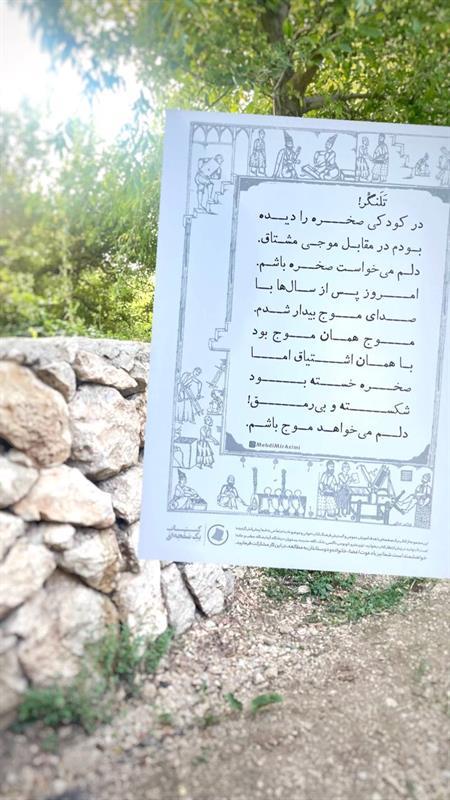 تَلَنگُر!
در کودکی صخره را دیده
بودم در مقابل موجی مشتاق.
دلم می‌خواست صخره باشم.
امروز پس از سال‌ها با
صدای موج بیدار شدم.
موج همان موج بود
با همان اشتیاق اما
صخره خسته بود
شکسته و بی‌رمق!
دلم می‌خواهد موج باشم.
MehdiMirAzimi
کتاب
یک صفحه‌ای